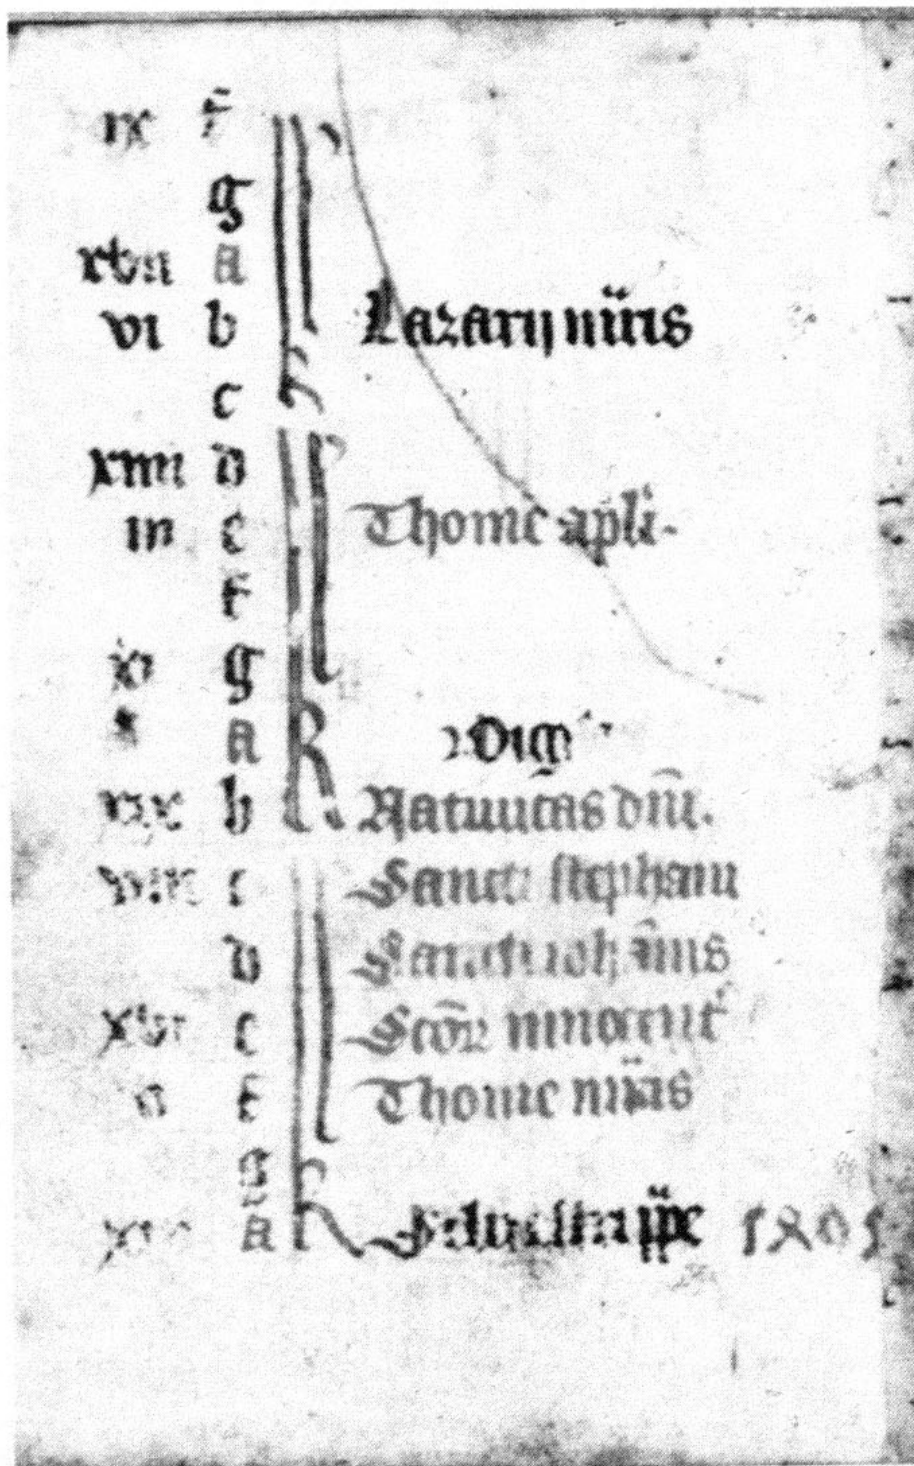 ix f
g
xvii a
vi b Lazarij mr̃is
c
xiiii d
iii e Thome apl̃i.
f
xi g
a Vigl̃
xix b Natiuitas dñi.
viii c Sancti stephani
d Sancti ioh̃annis
xvi e Scõr innocent̃
v f Thome mr̃is
g
a Siluestri pp̃e